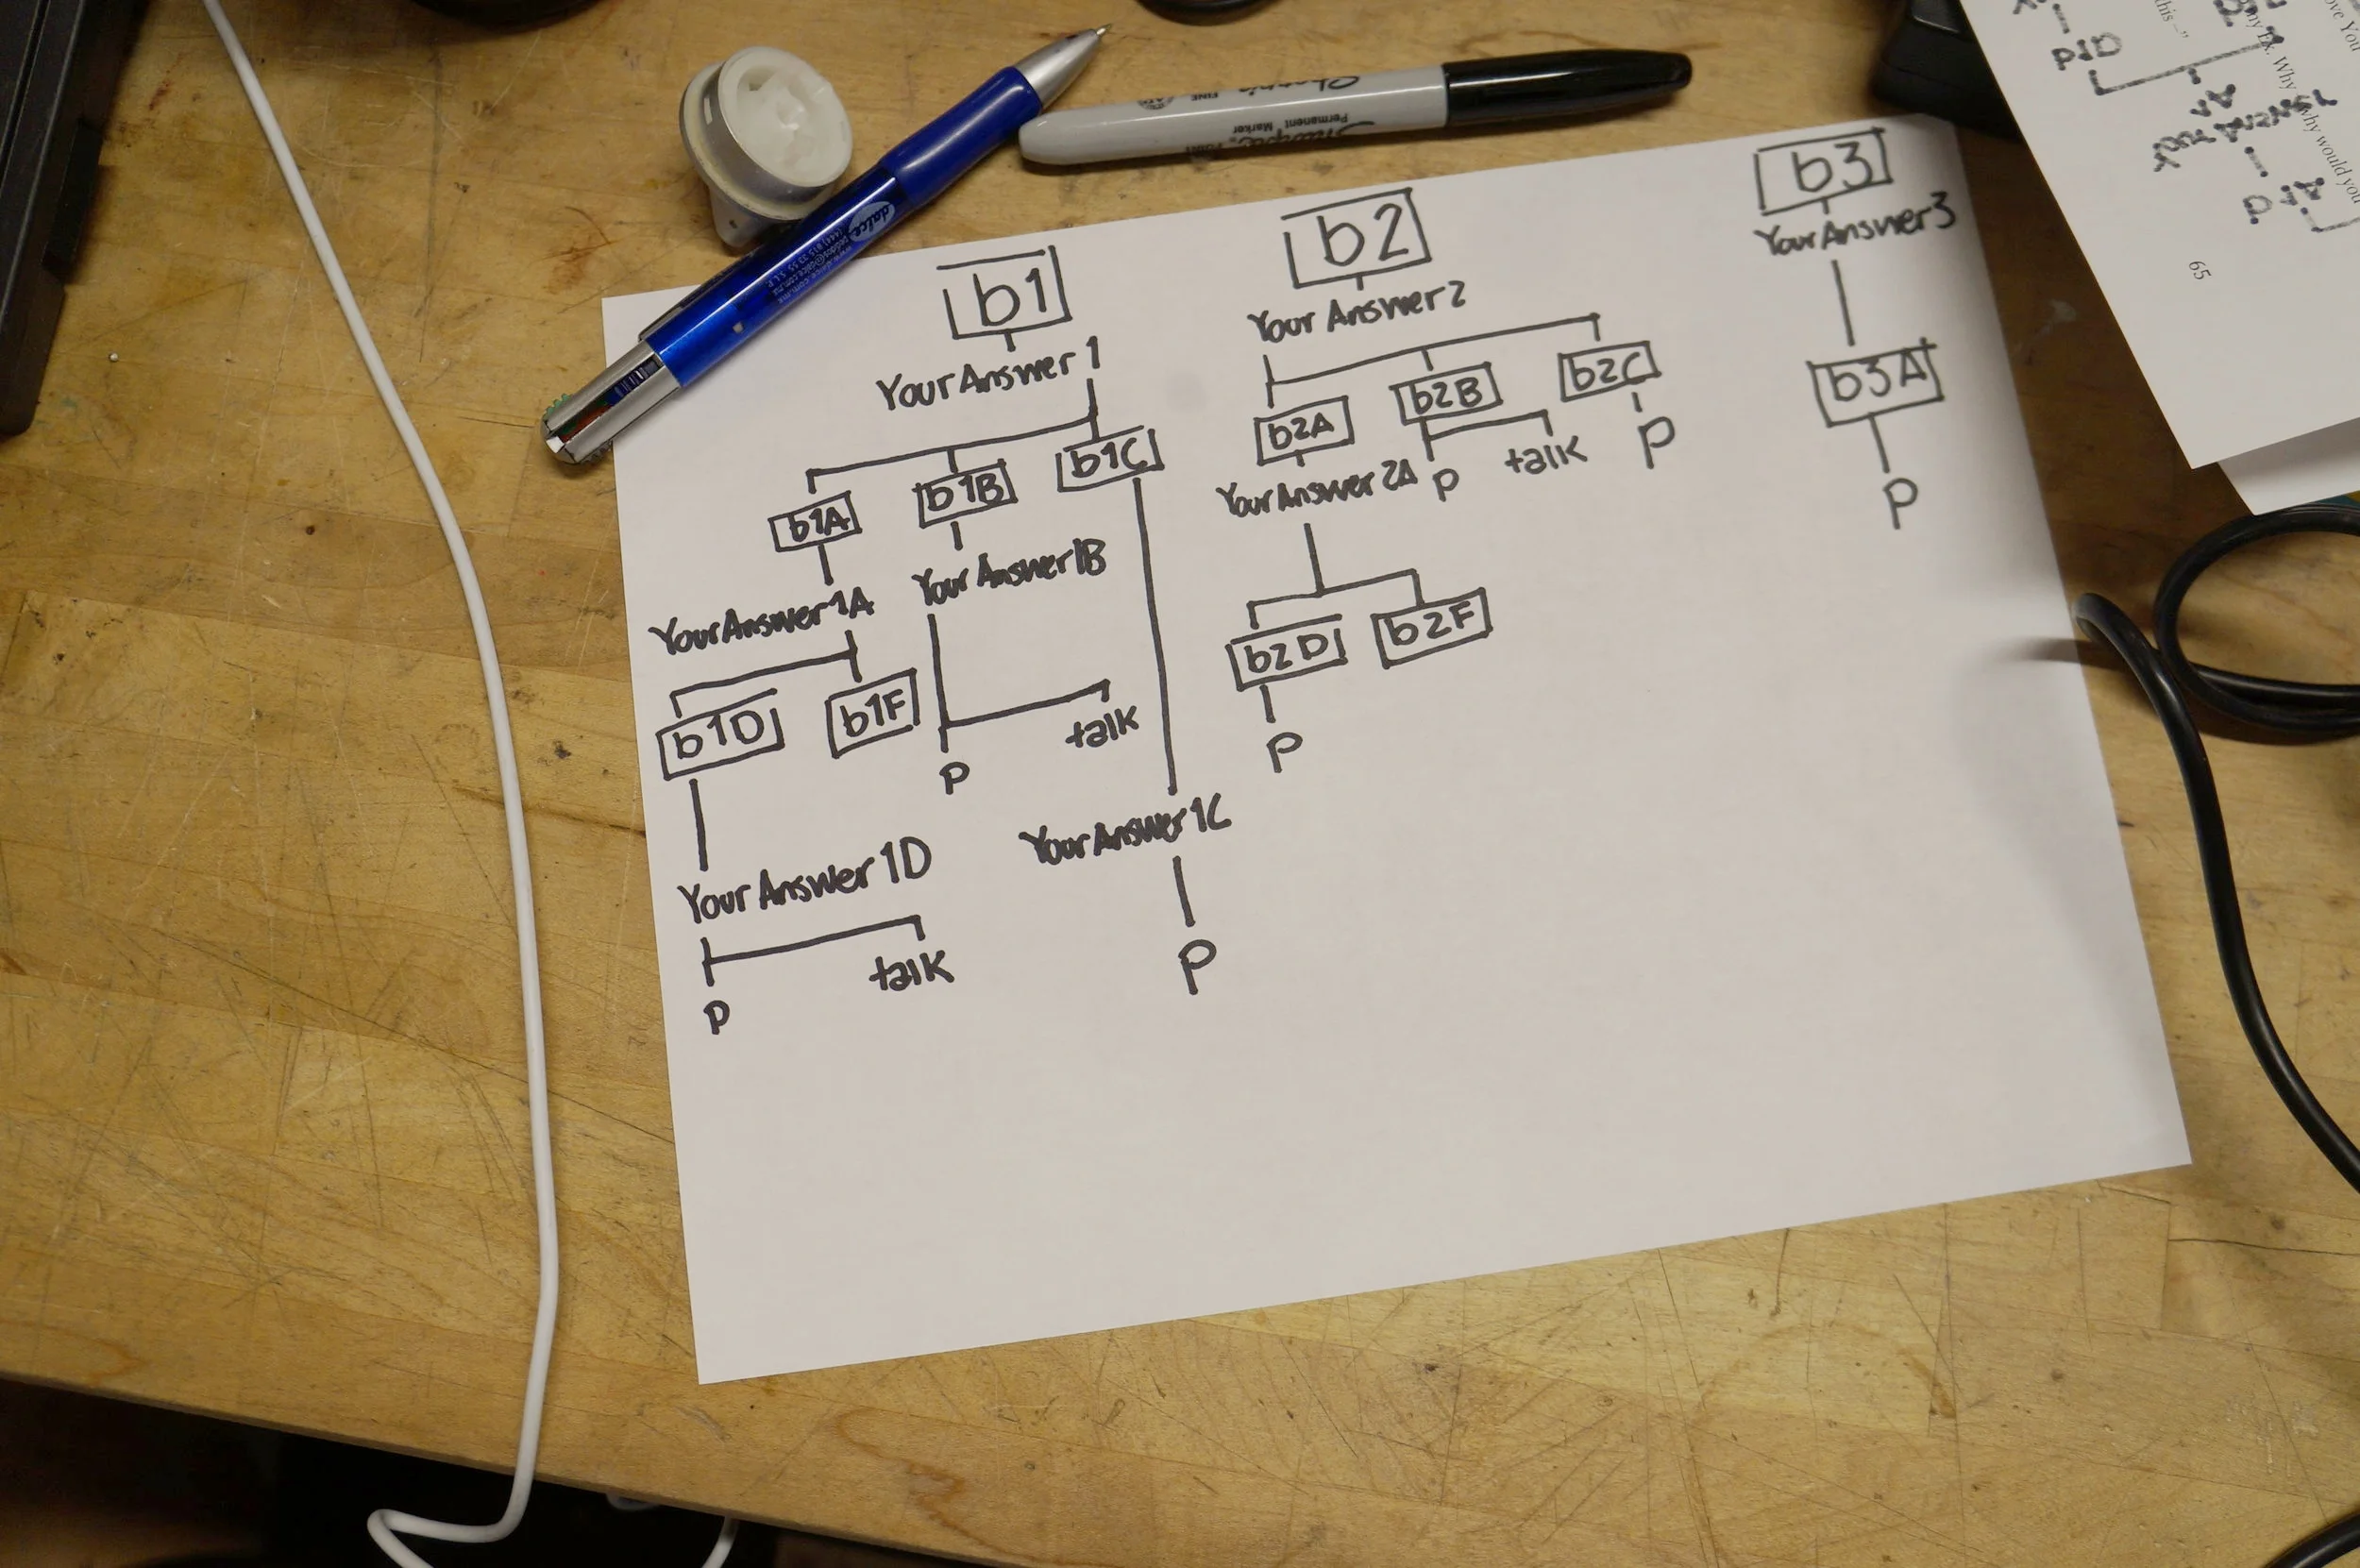 b1
Your Answer 1
b1A
b1B
b1C
Your Answer 1A
Your Answer 1B
b1D
b1F
P
talk
Your Answer 1D
Your Answer 1C
P
talk
P
b2
Your Answer 2
b2A
b2B
b2C
Your Answer 2A
P
talk
P
b2D
b2F
P
b3
Your Answer 3
b3A
P
Sharpie
FINE
Permanent Marker
dalce
this..."
Why
why would you
ove You
65